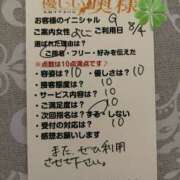 優しい奥様
お客様のイニシャル G
ご案内女性 よしこ ご利用日 8/4
選ばれた理由は?
ご指名・フリー・好みを伝えた
※点数は10点満点です♪
容姿は? 10 ・優しさは? 10
技術は? 10
サービス内容は? 10
ご満足度は? 10
次回指名は? する・しない
受付の対応は? 10
感想お願いします
また、ぜひ利用
させて下さい。